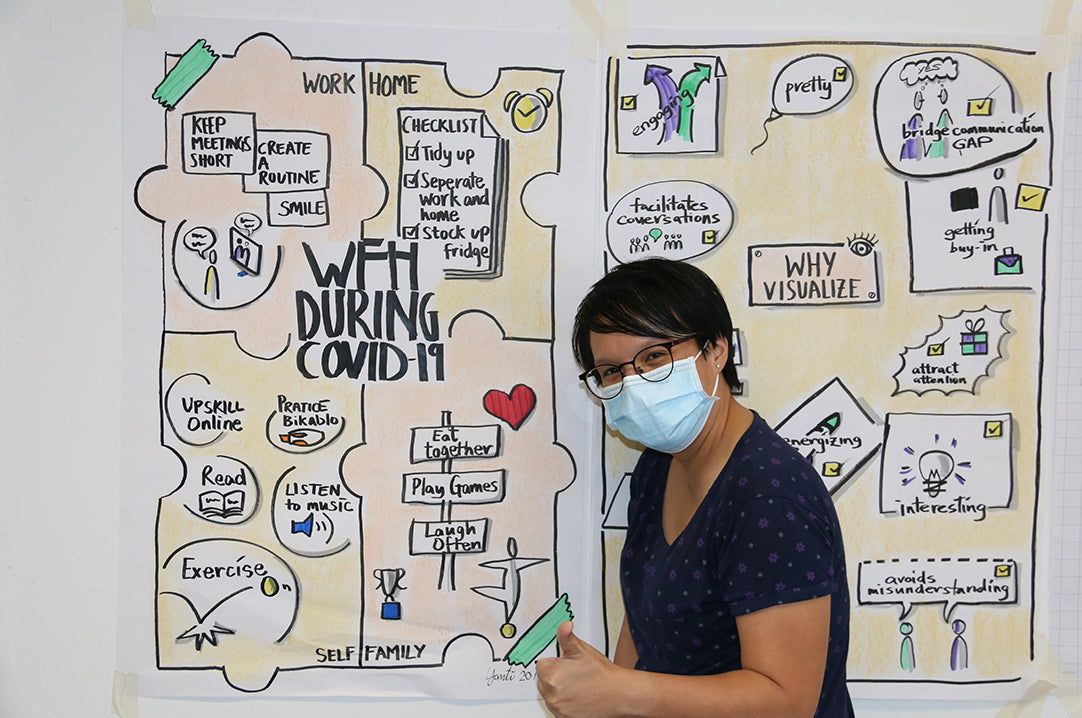 WORK HOME
KEEP
MEETINGS
SHORT
CREATE
A
ROUTINE
SMILE
CHECKLIST
Tidy up
Seperate
work and
home
Stock up
fridge
WFH
DURING
COVID-19
UPSKILL
Online
PRATICE
Bikablo
Read
LISTEN
to music
Exercise
Eat
together
Play Games
Laugh
Often
SELF FAMILY
engaging
pretty
YES
bridge communication
GAP
facilitates
coversations
getting
buy-in
WHY
VISUALIZE
attract
attention
energizing
interesting
avoids
misunderstanding